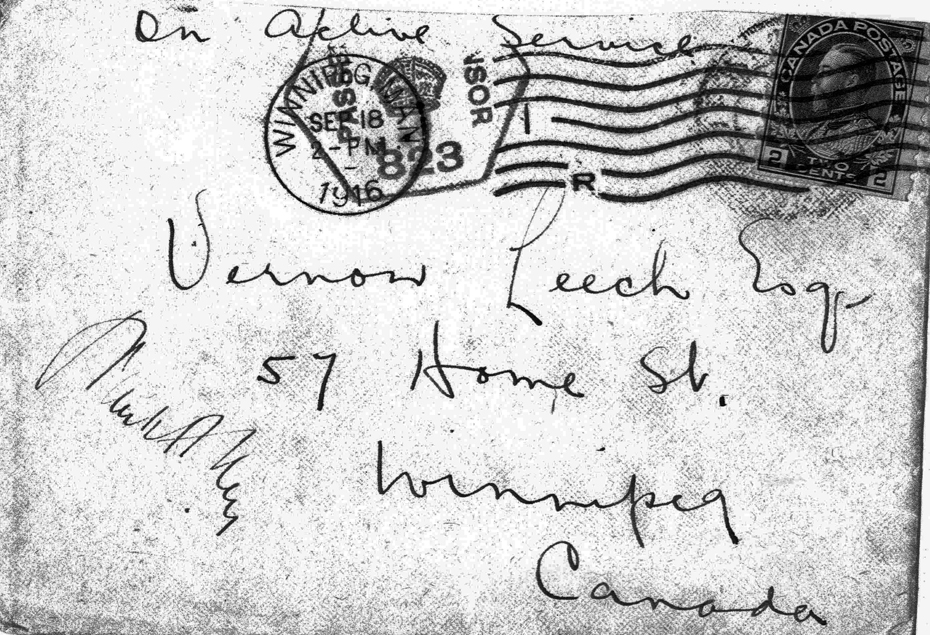 On Active Service
WINNIPEG MAN.
SEP 18
2 - PM
1916
PASSED
NSOR
823
1
R
CANADA POSTAGE
2 TWO CENTS 2
Vernon Leech Esq.
57 Home St.
Winnipeg
Canada